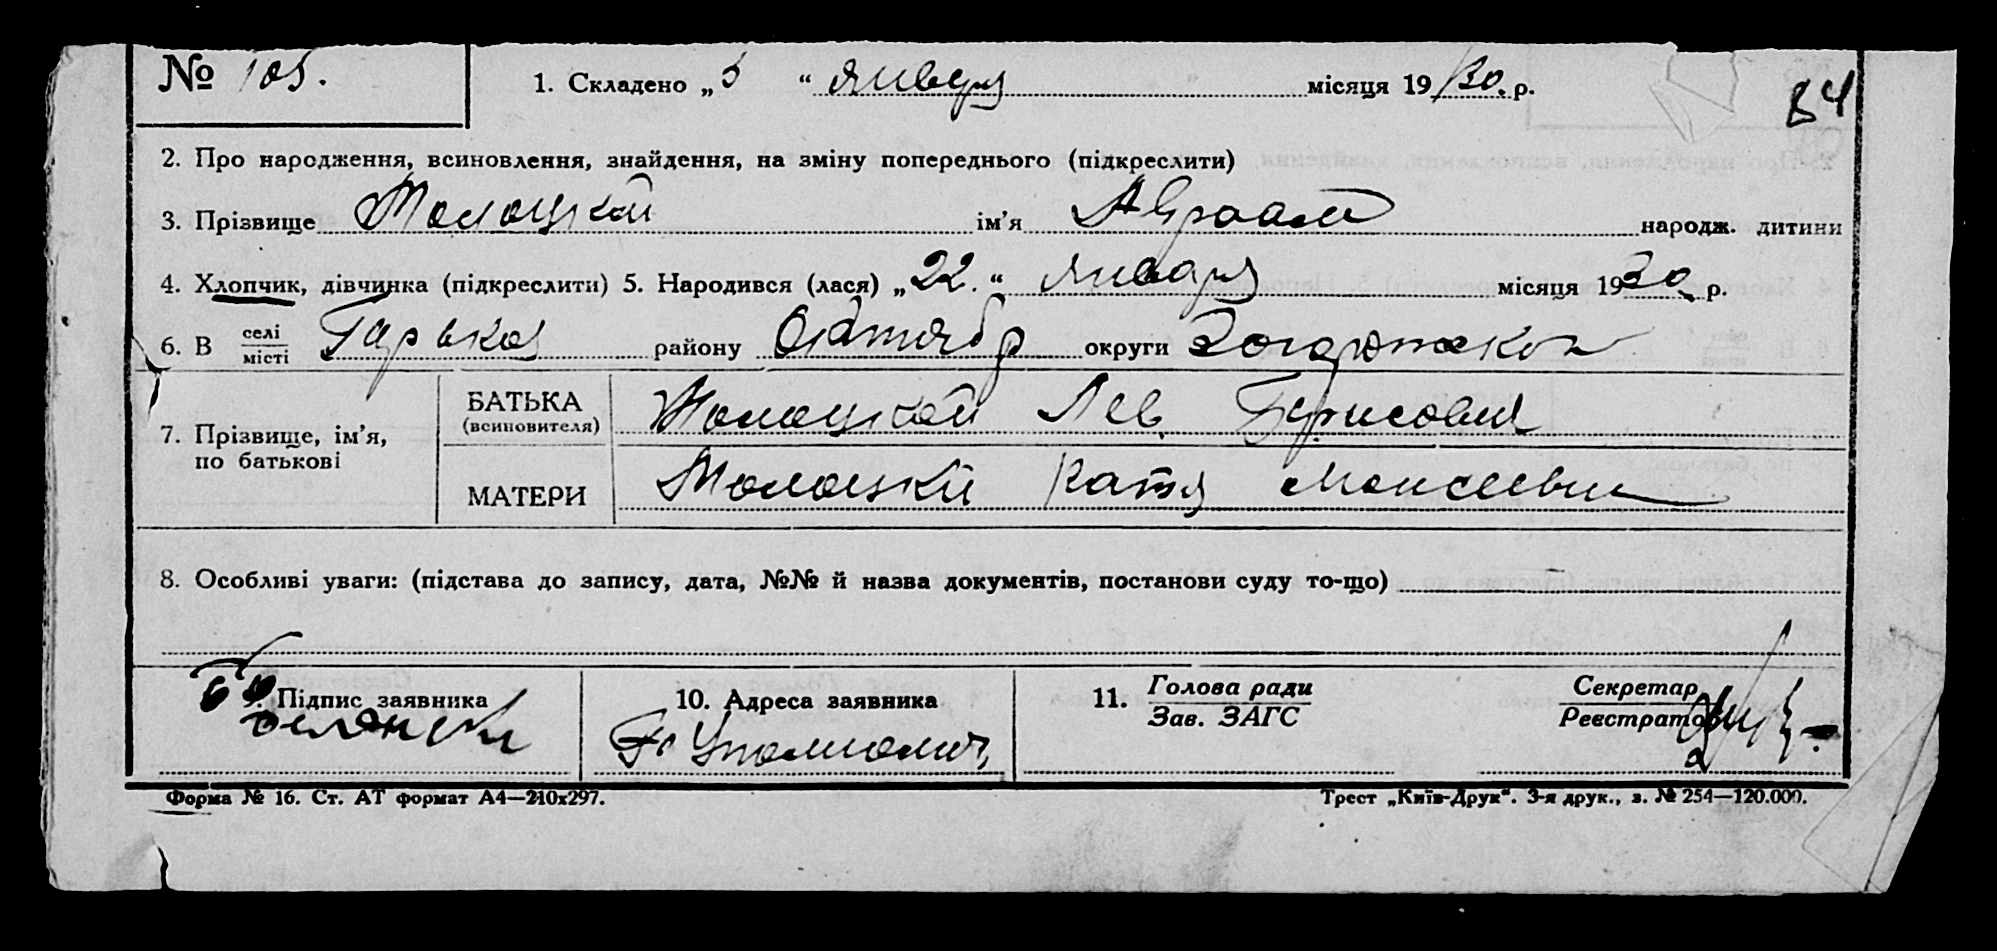 № 105.
1. Складено „5 “ января місяця 1930. р.
84
2. Про народження, всиновлення, знайдення, на зміну попереднього (підкреслити)
3. Прізвище Толоцкой ім’я Авраам народж. дитини
4. Хлопчик, дівчинка (підкреслити) 5. Народився (лася) „22.“ января місяця 1930 р.
6. В селі
місті
району Октябр округи
7. Прізвище, ім’я,
по батькові
БАТЬКА
(всиновителя)
Толоцкой Лев Борисович
МАТЕРИ
Толоцкй Катя Моисеевн
8. Особливі уваги: (підстава до запису, дата, №№ й назва документів, постанови суду то-що)
9. Підпис заявника
10. Адреса заявника
11. Голова ради
Зав. ЗАГС
Секретар
Реєстратор
Форма № 16. Ст. АТ формат А4—210х297.
Трест „Київ-Друк“. 3-я друк., з. № 254—120.000.